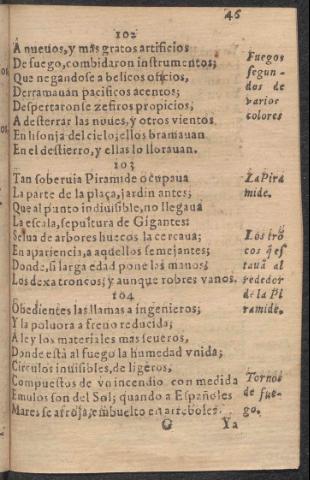 46
102
A nueuos, y màs gratos artificios
De fuego, combidaron instrumentos;
Que negandose a belicos oficios,
Derramauan pacificos acentos;
Despertaronse zefiros propicios,
A desterrar las nuues, y otros vientos
En lisonja del cielo; ellos bramauan
En el destierro, y ellas lo llorauan.
Fuegos
segun-
dos de
varios
colores
103
Tan soberuia Piramide ocupaua
La parte de la plaça, jardin antes;
Que al punto indiuisible, no llegaua
La escala, sepultura de Gigantes:
Selua de arboles huecos la cercaua;
En apariencia, a aquellos semejantes;
Donde, si larga edad pone las manos;
Los dexa troncos; y aunque robres vanos.
La Pira
mide.
Los trõ
cos q̃ es
tauã al
rededor
de la Pi
ramide.
104
Obedientes las llamas a ingenieros;
Y la poluora a freno reducida;
A ley los materiales mas seueros,
Donde està al fuego la humedad vnida;
Circulos inuisibles, de ligeros,
Compuestos de vn incendio con medida
Emulos son del Sol; quando a Españoles
Mares se arroja, embuelto en arreboles.
Tornos
de fue-
go.
G Ya